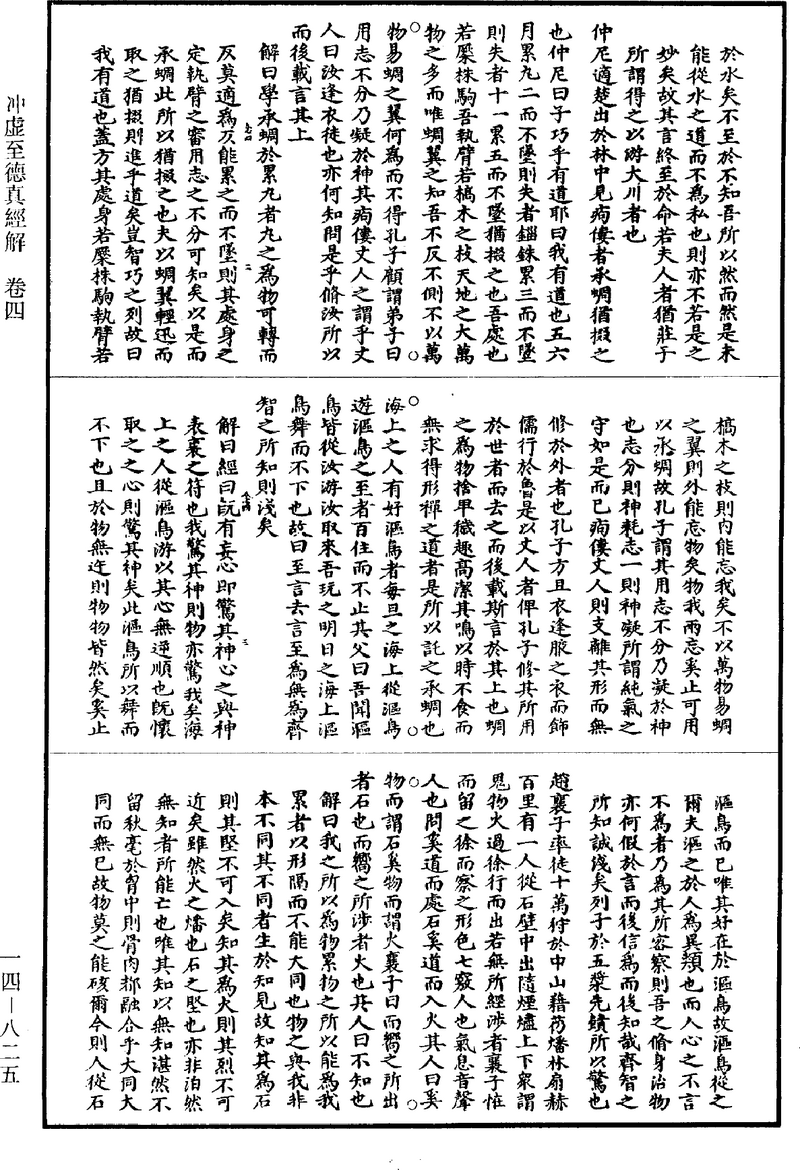 於水矣不至於不知吾所以然而然是未
能從水之道而不為私也則亦不若是之
妙矣故其言終至於命若夫人者猶莊子
所謂得之以游大川者也
仲尼適楚出於林中見痀僂者承蜩猶掇之
也仲尼曰子巧乎有道耶曰我有道也五六
月累丸二而不墜則失者錙銖累三而不墜
則失者十一累五而不墜猶掇之也吾處也
若橜株駒吾執臂若槁木之枝天地之大萬
物之多而唯蜩翼之知吾不反不側不以萬
物易蜩之翼何為而不得孔子顧謂弟子曰
用志不分乃凝於神其痀僂丈人之謂乎丈
人曰汝逢衣徒也亦何知問是乎脩汝所以
而後載言其上
解曰學承蜩於累丸者丸之為物可轉而
反莫適為反能累之而不墜則其處身之
定執臂之審用志之不分可知矣以是而
承蜩此所以猶掇之也夫以蜩翼輕迅而
取之猶掇則進乎道矣豈智巧之列故曰
我有道也蓋方其處身若橜株駒執臂若
槁木之枝則内能忘我矣不以萬物易蜩
之翼則外能忘物矣物我兩忘奚止可用
以承蜩故孔子謂其用志不分乃凝於神
也志分則神耗志一則神凝所謂純氣之
守如是而已痀僂丈人則支離其形而無
修於外者也孔子方且衣逢腋之衣而飾
儒行於魯是以丈人者俾孔子修其所用
於世者而去之而後載斯言於其上也蜩
之為物捨卑穢趣高潔其鳴以時不食而
無求得形禪之道者是所以託之承蜩也
海上之人有好漚鳥者每旦之海上從漚鳥
遊漚鳥之至者百住而不止其父曰吾聞漚
鳥皆從汝游汝取來吾玩之明日之海上漚
鳥舞而不下也故曰至言去言至為無為齊
智之所知則淺矣
解曰經曰既有妄心即驚其神心之與神
表裏之符也我驚其神則物亦驚我矣海
上之人從漚鳥游以其心無逆順也既懷
取之之心則驚其神矣此漚鳥所以舞而
不下也且於物無迕則物物皆然矣奚止
漚鳥而已唯其好在於漚鳥故漚鳥從之
爾夫漚之於人為異類也而人心之不言
不為者乃為其所容察則吾之脩身治物
亦何假於言而後信為而後知哉齊智之
所知誠淺矣列子於五漿先饋所以驚也
趙襄子率徒十萬狩於中山藉芿燔林扇赫
百里有一人從石壁中出隨煙燼上下衆謂
鬼物火過徐行而出若無所經涉者襄子恠
而留之徐而察之形色七竅人也氣息音聲
人也問奚道而處石奚道而入火其人曰奚
物而謂石奚物而謂火襄子曰而嚮之所出
者石也而嚮之所涉者火也其人曰不知也
解曰我之所以為物累物之所以能為我
累者以形隔而不能大同也物之與我非
本不同其不同者生於知見故知其為石
則其堅不可入矣知其為火則其烈不可
近矣雖然火之燔也石之堅也亦非泊然
無知者所能亡也唯其知以無知湛然不
留秋毫於胷中則骨肉都融合乎大同大
同而無已故物莫之能硋爾今則人從石
冲虛至德真經解　卷四
一四—八二五